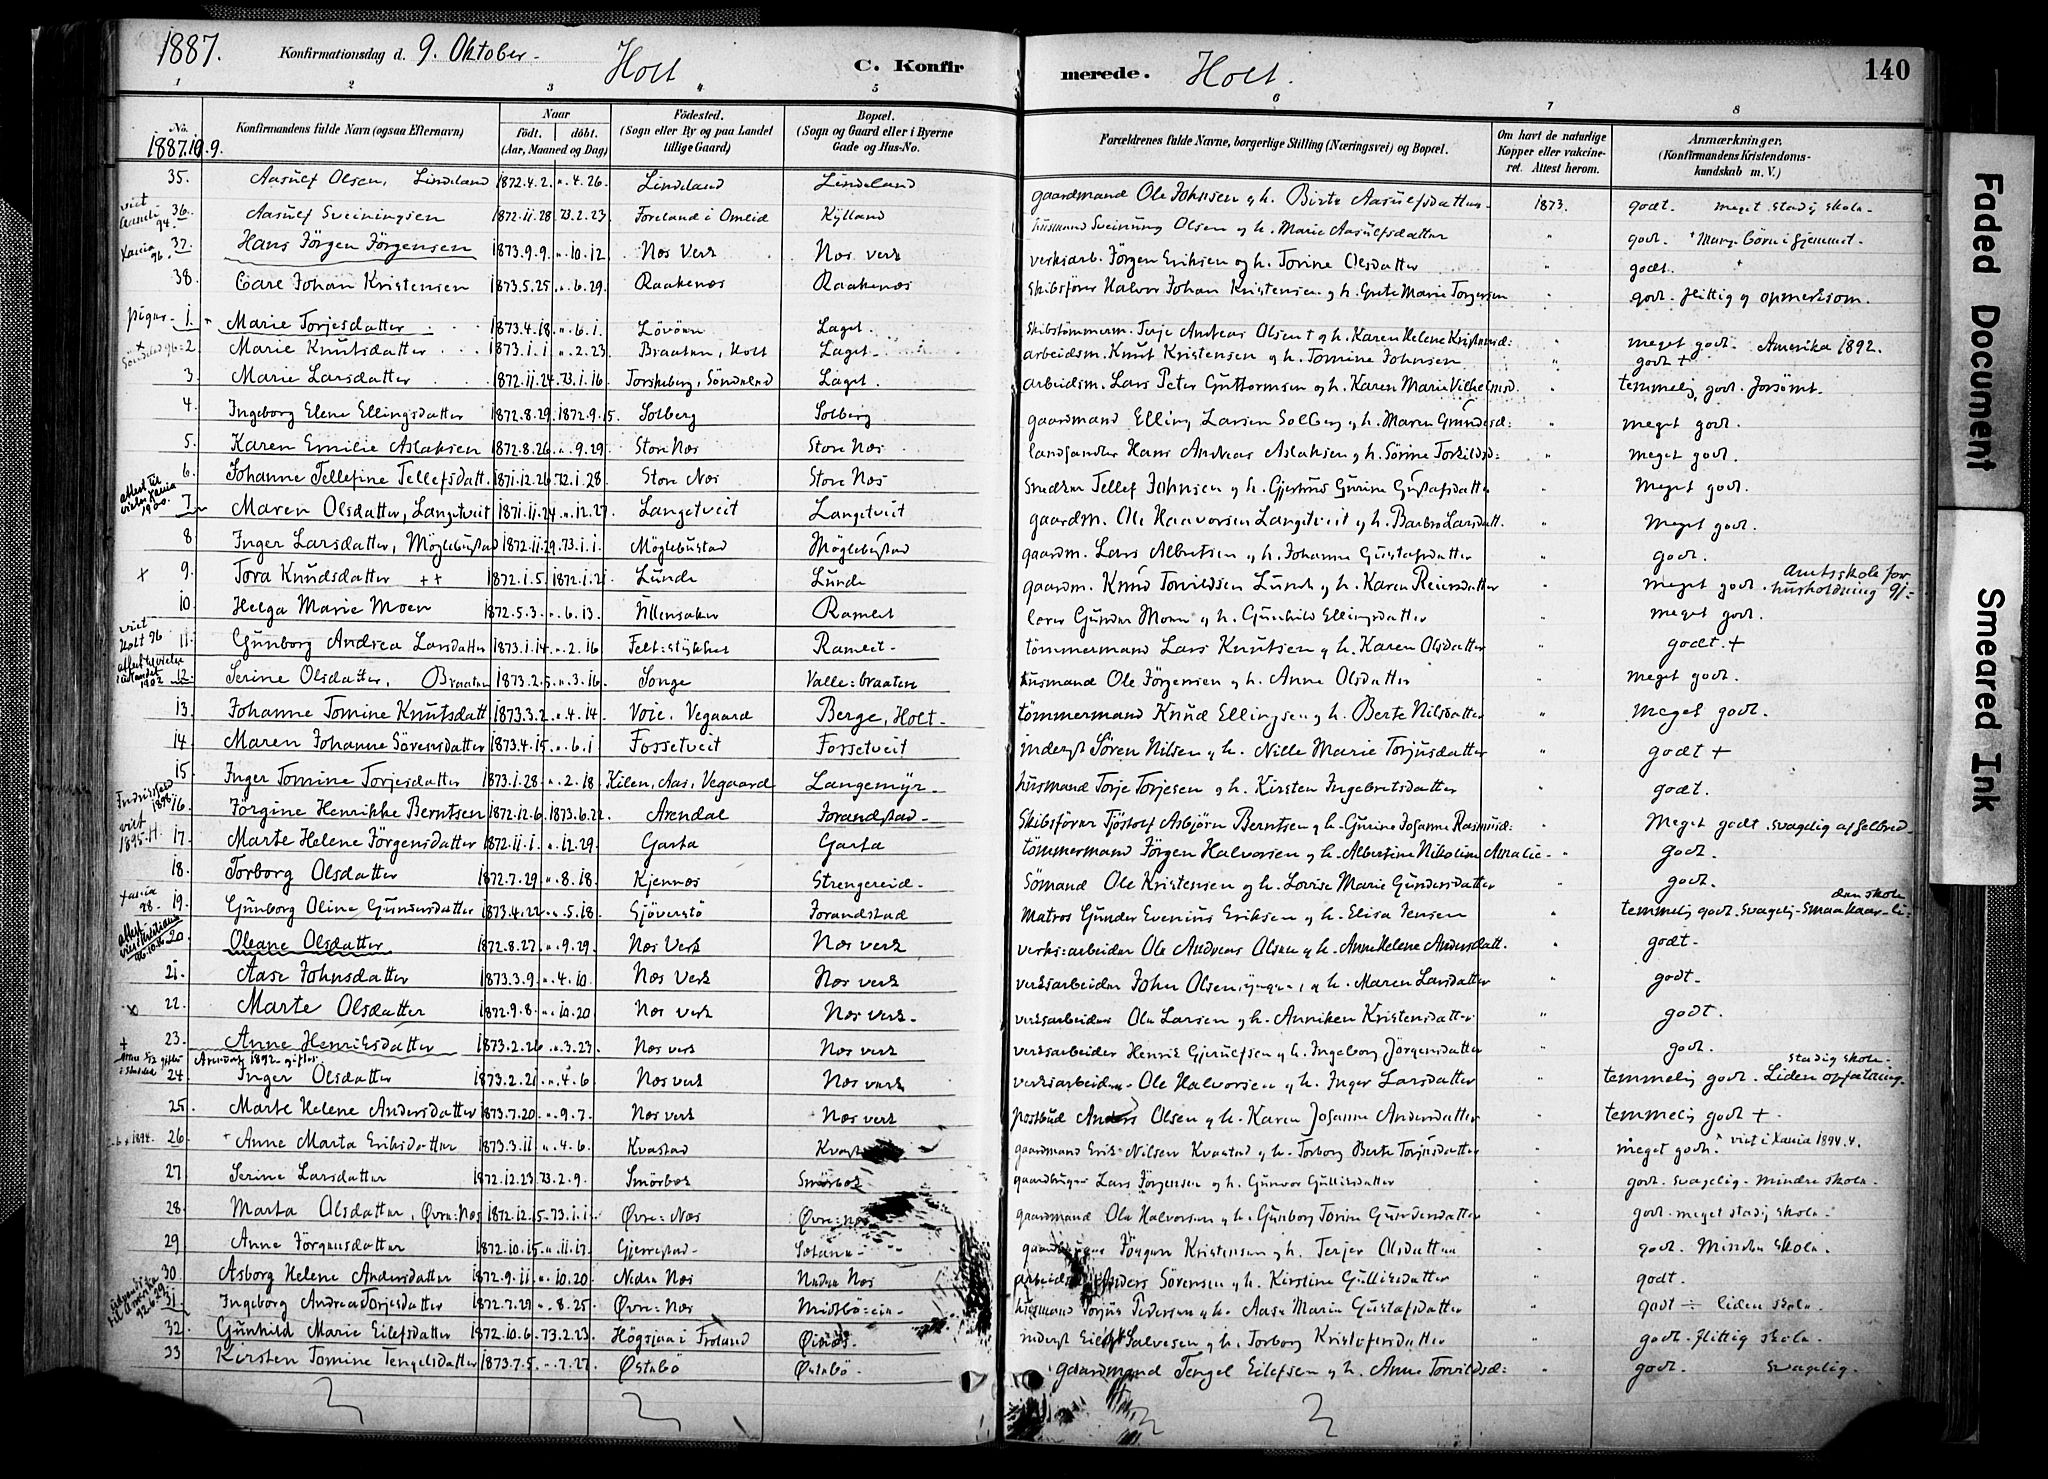 1887. Konfirmationsdag d. 9. Oktober - Holt C. Konfirmerede. Holt. 140
1 2 3 4 5 6 7 8
No. Konfirmandens fulde Navn (ogsaa Efternavn) Naar født. døbt. (Aar, Maaned og Dag) Fødested. (Sogn eller By og paa Landet tillige Gaard) Bopæl. (Sogn og Gaard eller i Byerne Gade og Hus-No. Forældrenes fulde Navne, borgerlige Stilling (Næringsvei) og Bopæl. Om havt de naturlige Kopper eller vakcineret. Attest herom. Anmærkninger. (Konfirmandens Kristendomskundskab m. V.)
1887.10.9.
35. Aasulf Olsen, Lindeland 1872.4.2. „.4.26. Lindeland Lindeland gaardmand Ole Johnsen og h. Birte Aasulfsdatter. 1873. godt. meget stadig skole.
36. Aasulf Sveiningsen 1872.11.28. 73.2.23. Foreland i Omlid Kylland husmand Sveinung Olsen og h. Marie Aasulfsdatter „ godt. Mange børn i hjemmet.
37. Hans Jörgen Jörgensen 1873.9.9. „.10.12 Nes Verk Nes verk verksarb. Jörgen Eriksen og h. Torine Olsdatter „ godt.
38 Carl Johan Kristensen 1873.5.25 „.6.29. Raakenes Raakenes Skibsfører Halvor Johan Kristensen og h. Grete Marie Torgersen „ godt. flittig og opmerksom.
piger. 1. Marie Torjesdatter 1873.4.18. „.6.1. Lövöen Laget. Skibstömmerm. Terje Andreas Olsen og h. Karen Helene Kristensd: „ meget godt. Amerika 1892.
2 Marie Knutsdatter 1873.1.1. „.2.23. Braaten, Holt Laget. arbeidsm. Knut Kristensen og h. Tomine Johnsen „ godt +
3. Marie Larsdatter 1872.11.24. 73.1.16. Torskeberg, Söndeled Laget. arbeidsm. Lars Peter Guttormsen og h. Karen Marie Vilhelmsd. „ temmelig godt. forsömt.
4. Ingeborg Elene Ellingsdatter 1872.8.29. 1872.9.15. Solberg Solberg gaardmand Elling Larsen Solberg og h. Maren Gundersd: „ meget godt.
5. Karen Emilie Aslaksen 1872.8.26. „.9.29. Store Nes Store Nes landhandler Hans Andreas Aslaksen og h. Sörine Torkildsd: „ meget godt.
6. Johanne Tellefine Tellefsdatt. 1871.12.26. 72.1.28. Store Nes Store Nes Snedker Tellef Johnsen og h. Gjertrud Gurine Gustafsdatter „ Meget godt.
7. Maren Olsdatter, Langetveit 1871.11.24. „.12.27. Langetveit Langetveit gaardm. Ole Haavorsen Langetveit og h. Barbro Larsdatt. „ Meget godt.
8 Inger Larsdatter, Möglebustad 1872.11.29. 73.1.1. Möglebustad Möglebustad gaardm. Lars Albretsen og h. Johanne Gustafsdatter „ godt.
9. Tora Knudsdatter ++ 1872.1.5. 1872.1.21. Lunde Lunde gaardm. Knud Torvildsen Lunde og h. Karen Reiersdatter „ meget godt. Amtsskole for husholdning 91-
10. Helga Marie Moen 1872.5.3. „.6.13. Ullensaker Ramlet lærer Gunder Moen og h. Gunhild Ellingsdatter „ meget godt.
11. Gunborg Andrea Larsdatter 1873.1.14. „.2.16 Felt=stykket Ramlet. tömmermand Lars Knutsen og h. Karen Olsdatter „ godt. +
12. Serine Olsdatter, Braaten 1873.2.5. „.3.16. Songe Valle=braaten husmand Ole Jörgensen og h. Anne Olsdatter „ meget godt.
13. Johanne Tomine Knutsdatt 1873.3.2. „.4.14. Voie. Vegaard Berge, Holt. tömmermand Knud Ellingsen og h. Berte Nilsdatter „ Meget godt.
14. Maren Johanne Sörensdatter 1873.4.15. „.6.1 Fossetveit Fossetveit inderst Sören Nilsen og h. Nille Marie Torjusdatter „ godt +
15. Inger Tomine Torjesdatter 1873.1.28. „.2.18 Kilen, Aas, Vegaard Langemyr. husmand Torje Torjesen og h. Kirsten Ingebretsdatter „ godt.
16. Jörgine Henrikke Berntsen 1872.12.6. 1873.6.22. Arendal Forandstad. Skibsfører Tjöstolf Asbjörn Berntsen og h. Gurine Johanne Rasmusd: „ Meget godt. svagelig af helbred.
17. Marte Helene Jörgensdatter 1872.11.1. „.12.29. Garta Garta tömmermand Jörgen Halvorsen og h. Albertine Nikoline Amalie. „ godt.
18. Torborg Olsdatter 1872.7.29. „.8.18. Kjennes Strengereid. Sömand Ole Kristensen og h. Lovise Marie Gundersdatter „ godt.
19. Gunborg Oline Gundersdatter 1873.4.22. „.5.18. Gjöverstö Forandstad Matros Gunder Evenius Eriksen og h. Elisa Jensen „ temmelig godt. Svagelig.
20 Oleane Olsdatter 1872.8.27. „.9.29. Nes Verk Nes verk verks=arbeider Ole Andreas Olsen og h. Anne Helene Andersdatt. „ godt.
21. Aase Johnsdatter 1873.3.9. „.4.10. Nes Verk Nes verk verksarbeider John Olsen og h. Maren Larsdatter „ godt.
22. Marte Olsdatter 1872.9.8. „.10.20 Nes verk Nes verk. verksarbeider Ole Larsen og h. Anniken Kristensdatter „ godt.
23. Anne Henriksdatter 1873.2.26 „.3.23. Nes verk Nes verk verksarbeider Henrik Gjerulfsen og h. Ingeborg Jörgensdatter „ godt.
Arendal 1892. gifter
24 Inger Olsdatter 1873.2.21. „.4.6 Nes verk Nes verk verksarbeider Ole Halvorsen og h. Inger Larsdatter „ temmelig godt. stadig skole. Liden opfatning.
25. Marte Helene Andersdatter 1873.7.20. „.9.7. Nes verk Nes verk postbud Anders Olsen og h. Karen Josanne Andersdatter „ temmelig godt +
26 + Anne Marta Eriksdatter 1873.3.11 „.4.6. Kvastad gaardmand Erik Nilsen Kvastad og h. Torborg Berte Torjusdatter „ meget godt. viet i Xania 1894.4.
27 Serine Larsdatter 1872.12.23. 73.2.9. Smörbek Smörbek gaardbruger Lars Jörgensen og h. Gunvor Gulliksdatter „ godt. svagelig. mindre skole.
28 Marta Olsdatter, Øvre=Nes 1872.12.5. 73.1.1. Øvre=Nes Øvre=nes gaardmand Ole Halvorsen og h. Gunborg Torine Gundersdatter „ godt. meget stadig skole.
29 Anne Jörgensdatter 1872.10.15. „.11.17. Gjerrestad. Jörgen Kristensen og h. Terjer Olsdatter „ godt. Mindre skole.
30 Asborg Helene Andersdatter 1872.9.11. „.10.20. Nedre Nes Nedre Nes arbeidsm. Anders Sörensen og h. Kirstine Gulliksdatter „ godt.
31. Ingeborg Andrea Torjesdatter 1872.7.29 „.8.25. Øvre=Nes husmand Torjus Pedersen og h. Aase Marie Gustafsdatter „ godt ÷ liden skole.
32. Gunhild Marie Eilefsdatter 1872.10.6. 73.2.23. Högsjaa i Froland inderst Eilef Salvesen og h. Torborg Kristofersdatter „ godt. flittig skole.
33 Kirsten Tomine Tengelsdatter 1873.7.5. „.7.27. Østebö Østebö. gaardmand Tengel Eilefsen og h. Anne Torvildsd: „ godt. svagelig.
Faded Document
Smeared Ink